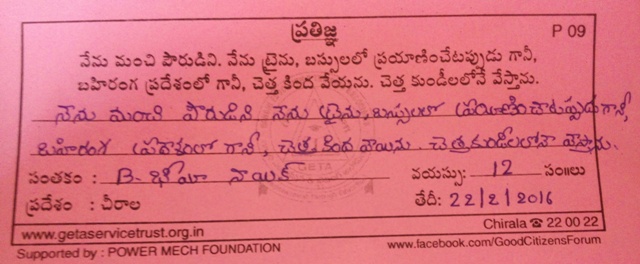 ప్రతిజ్ఞ
P 09
నేను మంచి పౌరుడిని. నేను ట్రైను, బస్సులలో ప్రయాణించేటప్పుడు గానీ,
బహిరంగ ప్రదేశంలో గానీ, చెత్త కింద వేయను. చెత్త కుండీలలోనే వేస్తాను.
నేను మంచి పౌరుడిని నేను ట్రైను, బస్సులలో ప్రయాణించేటప్పుడు గానీ,
బహిరంగ ప్రదేశంలో గానీ, చెత్త కింద వేయను. చెత్తకుండీలలోనే వేస్తాను.
సంతకం : B. భీమా నాయక్ వయస్సు: 12 సం॥లు
ప్రదేశం : చీరాల తేదీ: 22/2/2016
www.getaservicetrust.org.in Chirala ☎ 22 00 22
Supported by : POWER MECH FOUNDATION www.facebook.com/GoodCitizensForum